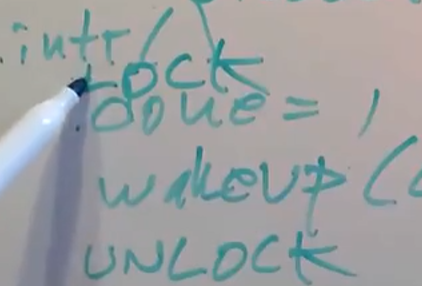 .intr(
LOCK
done = 1
wakeup (
UNLOCK